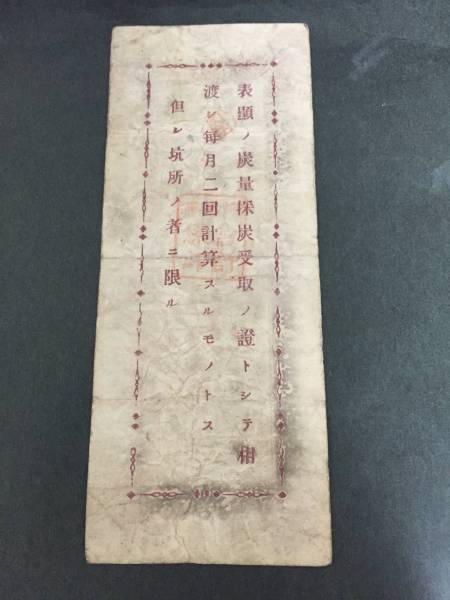 表顯ノ炭量採炭受取ノ證トシテ相
渡シ每月二回計算スルモノトス
但シ坑所ノ者ニ限ル